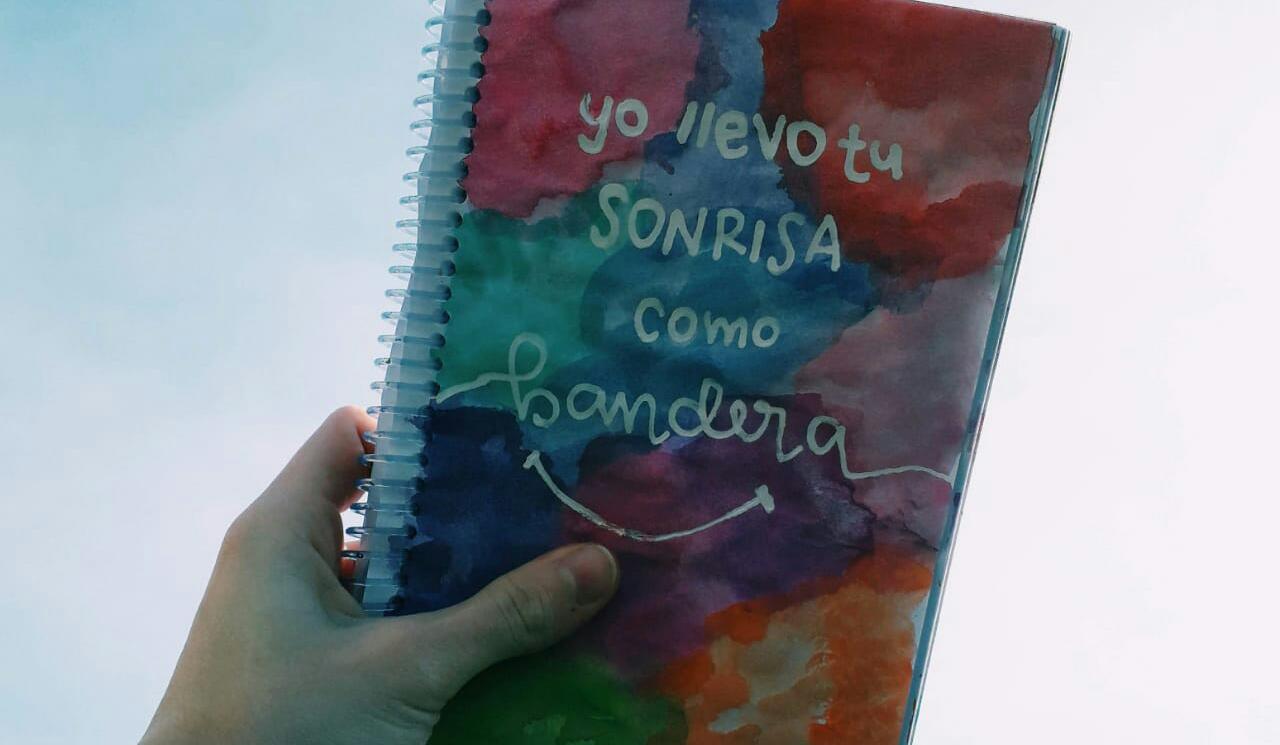 yo llevo tu
SONRISA
como
bandera